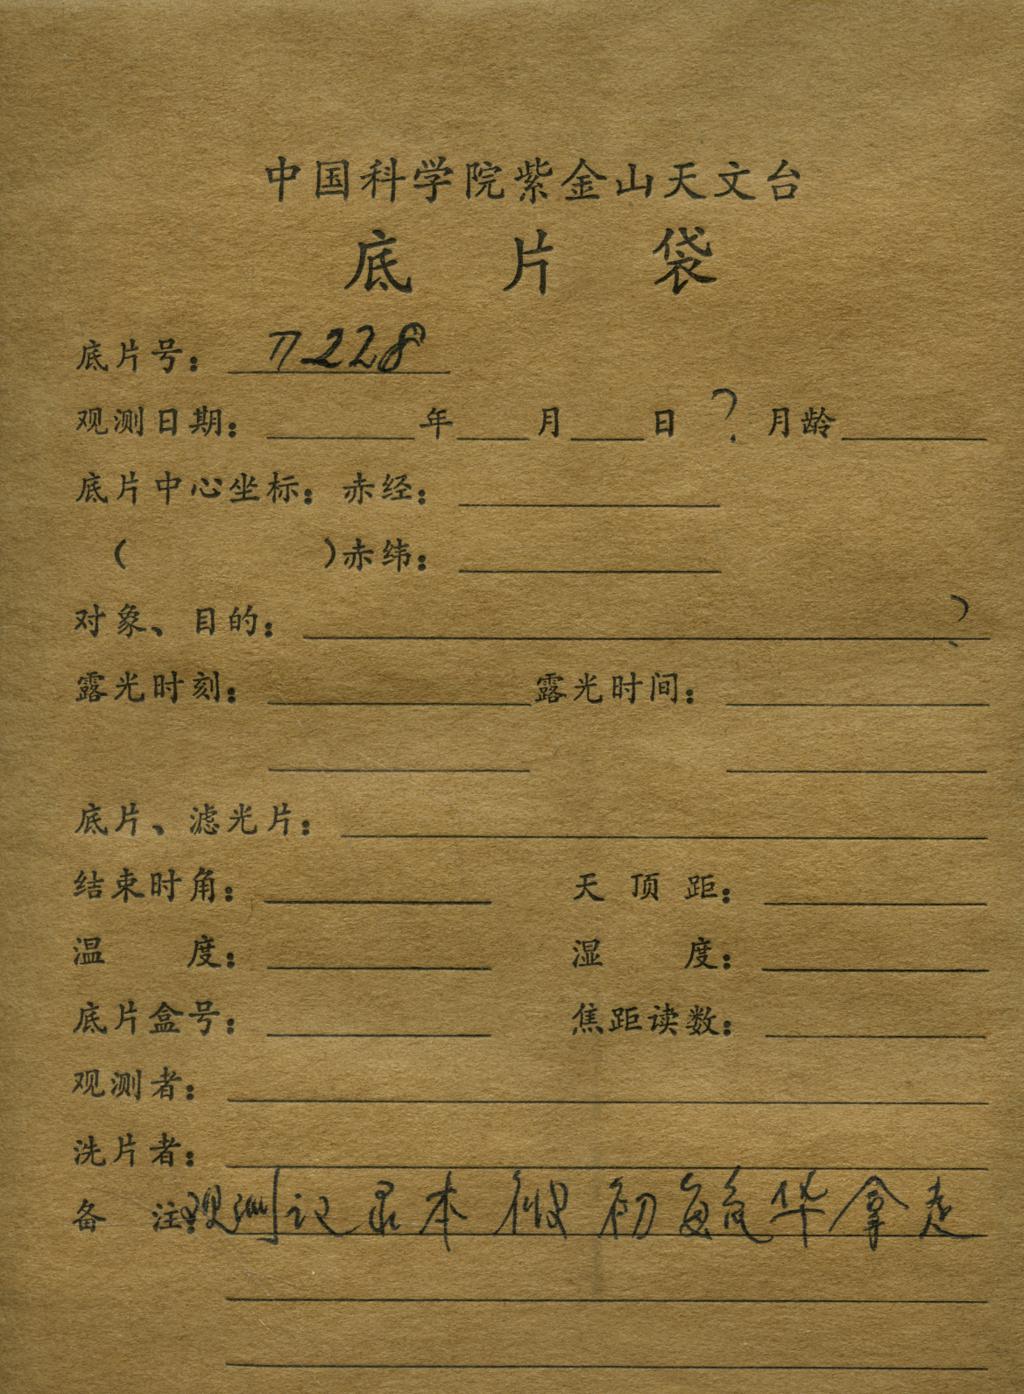 中国科学院紫金山天文台
底 片 袋
底片号： π228
观测日期： 年 月 日 ? 月龄
底片中心坐标：赤经：
（ ）赤纬：
对象、目的： ?
露光时刻： 露光时间：
底片、滤光片：
结束时角： 天 顶 距：
温 度： 湿 度：
底片盒号： 焦距读数：
观测者：
洗片者：
备 注：观测记录本被初毓华拿走